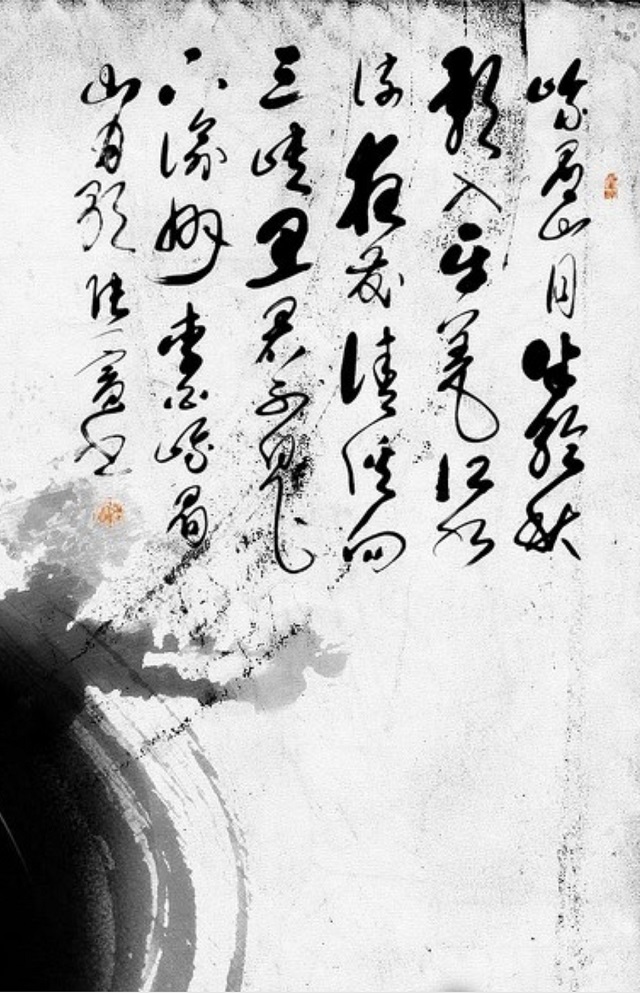 峨眉山月半轮秋
影入平羌江水
流夜发清溪向
三峡思君不见
下渝州李白峨眉
山月歌